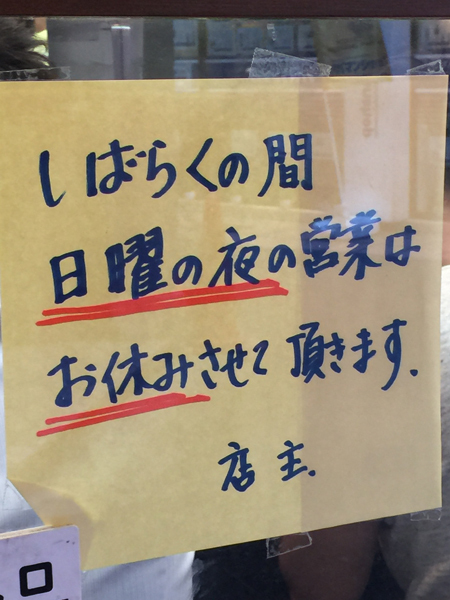 しばらくの間
日曜の夜の営業は
お休みさせて頂きます.
店主.